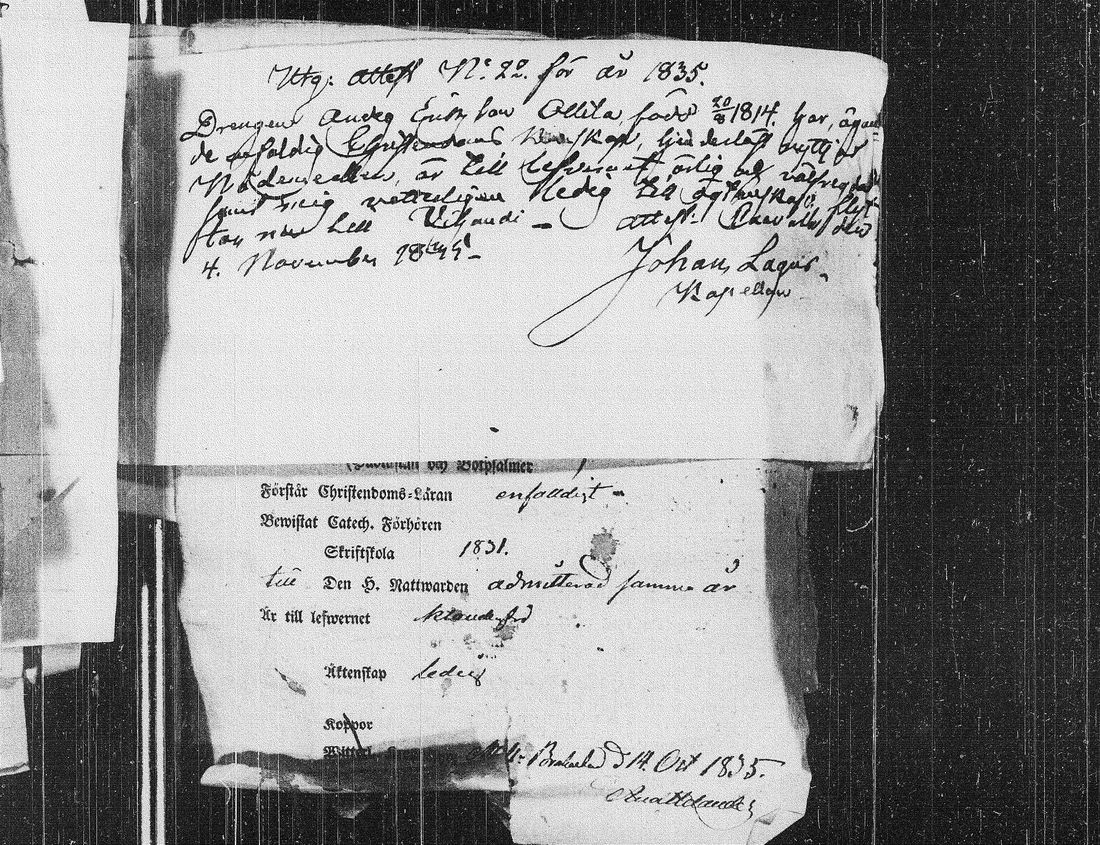 Utg: attest No. 20. för år 1835.
Drengen Anders Ericsson Ollila, född 20/8 1814. har, ägan-
de enfaldig Christendoms Kunskap, hinderlöst nyttjat
Nådemedlen, är till lefvernet ärlig och välfregdad
samt mig vetterligen ledig till äktenskap. flyt-
tar nu till Vihandi - attest. den
4. November 1835.
Johan Lagus.
Kapellan
och Botpsalmer
Förstår Christendoms-Läran enfaldigt -
Bewistat Catech. Förhören
Skriftskola 1831.
till Den H. Nattwarden admitterad samma år
Är till lefwernet
Äktenskap ledig
Koppor
Brahestad d 14 Oct 1835.